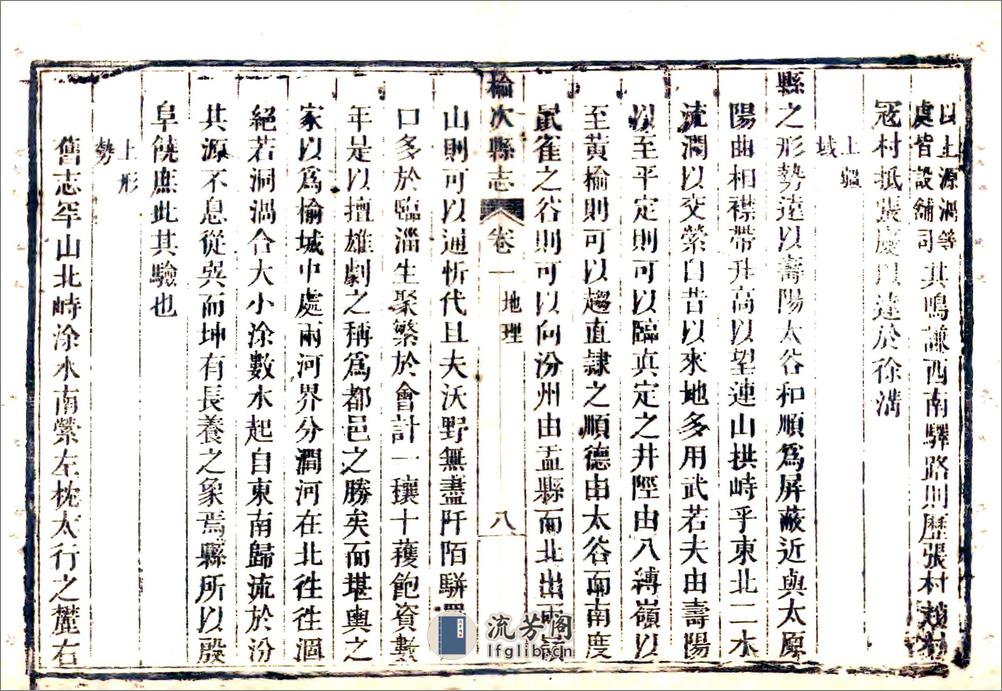 以上源渦等
虞皆設舖司其鳴謙西南驛路則歷張村
冦村抵張慶以達於徐溝
上疆
域
縣之形勢遠以壽陽太谷和順爲屏蔽近與太原
陽曲相襟帶升高以望連山拱峙乎東北二水
流潤以交縈自昔以來地多用武若夫由壽陽
以至平定則可以臨真定之井陘由八縛嶺以
至黃榆則可以趨直隸之順德由太谷而南度
鼠雀之谷則可以向汾州由盂縣而北出兩嶺
榆次縣志 卷一 地理 八
山則可以通忻代且夫沃野無盡阡陌駢
口多於臨淄生聚繁於會計一穰十穫飽資數
年是以擅雄劇之稱爲都邑之勝矣而堪輿之
家以爲榆城中處兩河界分澗河在北徃徃涸
絕若洞渦合大小涂數水起自東南歸流於汾
其源不息從巽而坤有長養之象焉縣所以殷
阜饒庶此其驗也
上形
勢
舊志罕山北峙涂水南縈左枕太行之麓右
流芳阁
lfglib.cn